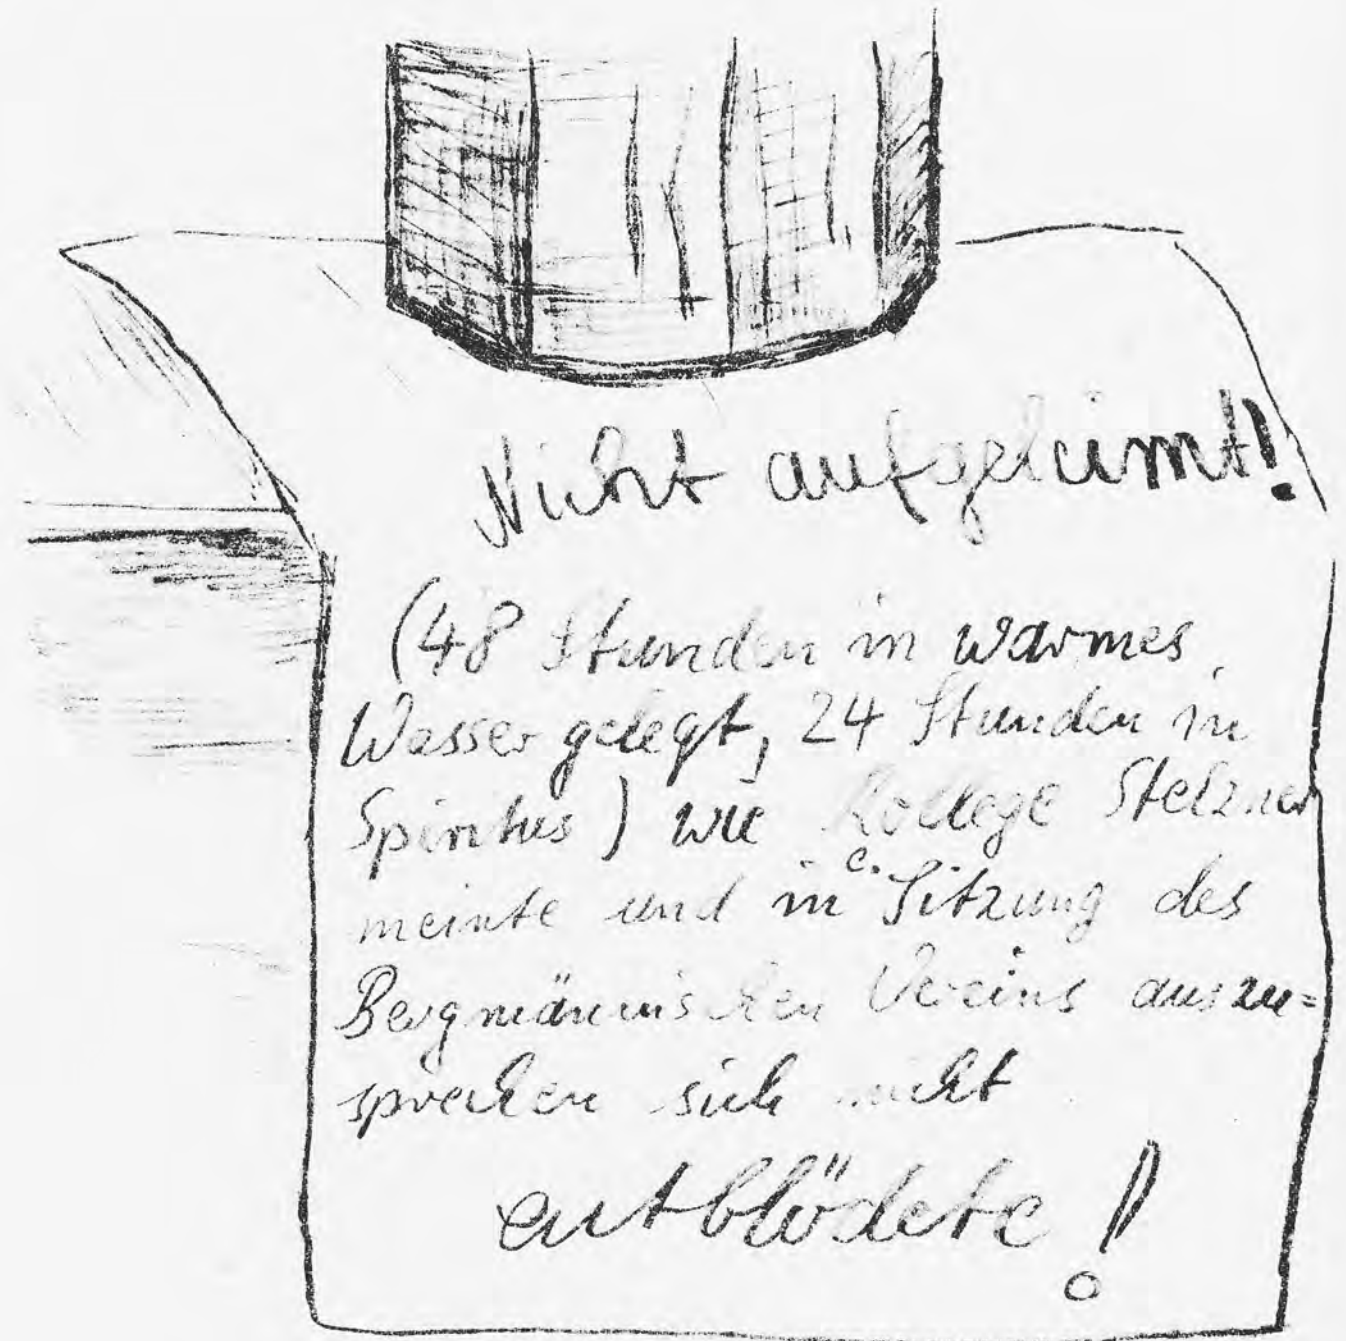 Nicht aufgeleimt!
(48 Stunden in warmes
Wasser gelegt, 24 Stunden in
Spiritus) wie Kollege Stelzner
meinte und in c. Sitzung des
Bergmännischen Vereins auszu=
sprechen sich nicht
entblödete!